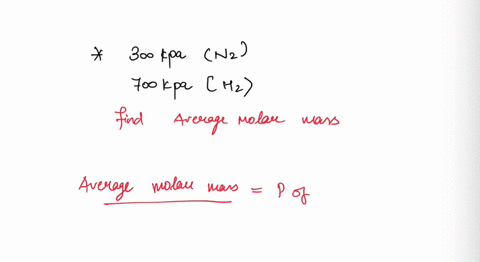 * 300 kpa (N2)
700 kpa (H2)
find Average molar mass
Average molar mass = P of